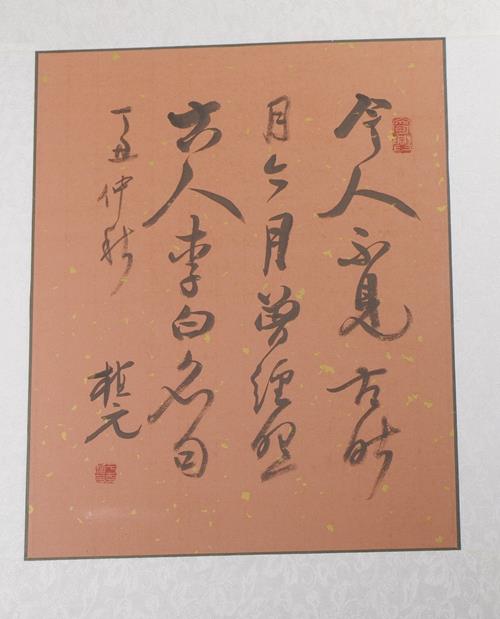 今人不見古時
月今月曾經照
古人李白名句
丁丑仲秋